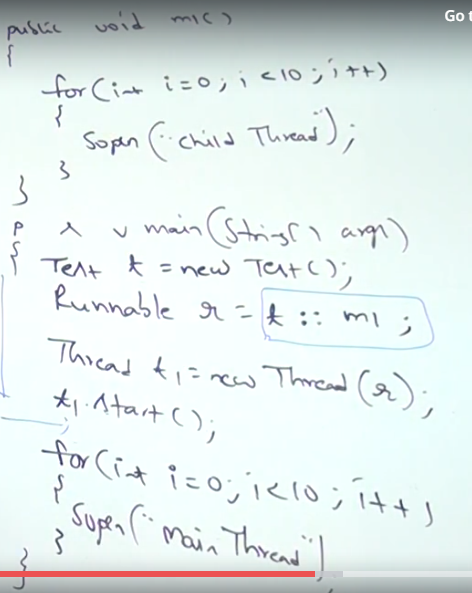 Go t
public void m1()
{
for(int i=0; i<10; i++)
{
Sopln("child Thread");
}
}
p s v main(String[] args)
{
Test t = new Test();
Runnable r = t :: m1 ;
Thread t1 = new Thread(r);
t1.start();
for(int i=0; i<10; i++)
{
Sopln("main Thread")
}
}